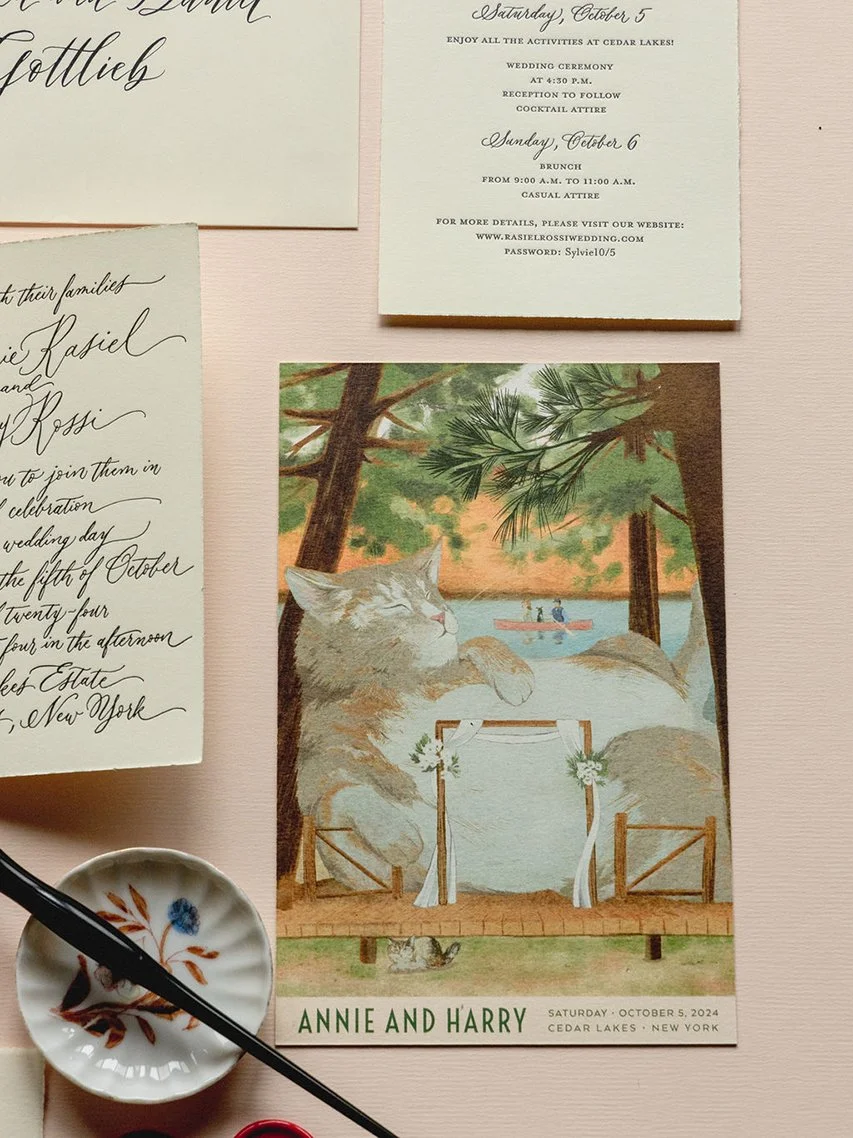 Gottlieb
Saturday, October 5
ENJOY ALL THE ACTIVITIES AT CEDAR LAKES!
WEDDING CEREMONY
AT 4:30 P.M.
RECEPTION TO FOLLOW
COCKTAIL ATTIRE
Sunday, October 6
BRUNCH
FROM 9:00 A.M. TO 11:00 A.M.
CASUAL ATTIRE
FOR MORE DETAILS, PLEASE VISIT OUR WEBSITE:
WWW.RASIELROSSIWEDDING.COM
PASSWORD: Sylvie10/5
their families
Rasiel
and
Rossi
to join them in
celebration
wedding day
the fifth of October
twenty-four
four in the afternoon
Estate
New York
ANNIE AND HARRY
SATURDAY · OCTOBER 5, 2024
CEDAR LAKES · NEW YORK